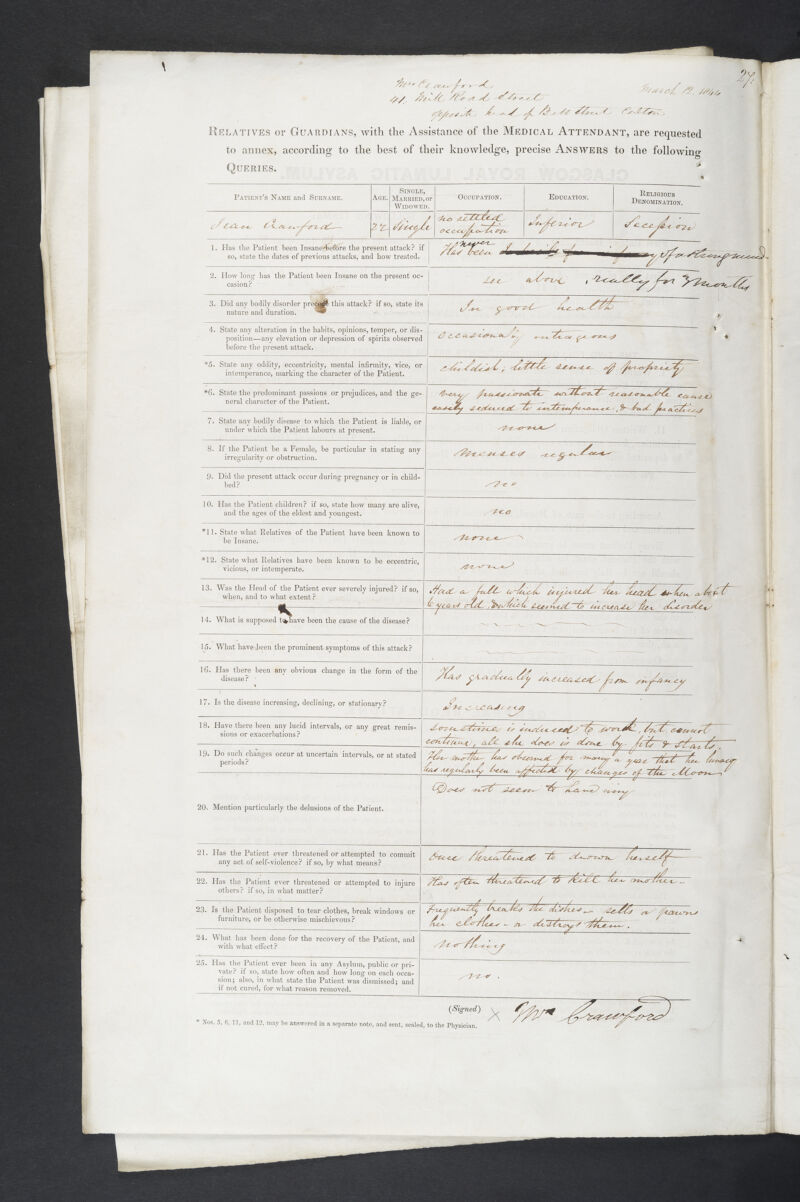 27.
Mrs Crawford March 12. 1844
41. Mill Road Street
opposite head of Street Calton
RELATIVES or GUARDIANS, with the Assistance of the MEDICAL ATTENDANT, are requested
to annex, according to the best of their knowledge, precise ANSWERS to the following
QUERIES.
PATIENT'S NAME and SURNAME. AGE. SINGLE, MARRIED, or WIDOWED. OCCUPATION. EDUCATION. RELIGIOUS DENOMINATION.
Jean Crawford 22 Single no settled occupation Inferior Secession
1. Has the Patient been Insane before the present attack? if
so, state the dates of previous attacks, and how treated.
Has never been of a strong mind
2. How long has the Patient been Insane on the present oc-
casion?
see above, really for 3 months
3. Did any bodily disorder precede this attack? if so, state its
nature and duration.
In good health
4. State any alteration in the habits, opinions, temper, or dis-
position—any elevation or depression of spirits observed
before the present attack.
occasionally outrageous
*5. State any oddity, eccentricity, mental infirmity, vice, or
intemperance, marking the character of the Patient.
childish, little sense of propriety
*6. State the predominant passions or prejudices, and the ge-
neral character of the Patient.
very passionate without reasonable cause
easily seduced to intemperance, & bad practices
7. State any bodily disease to which the Patient is liable, or
under which the Patient labours at present.
none
8. If the Patient be a Female, be particular in stating any
irregularity or obstruction.
menses regular
9. Did the present attack occur during pregnancy or in child-
bed?
no
10. Has the Patient children? if so, state how many are alive,
and the ages of the eldest and youngest.
no
*11. State what Relatives of the Patient have been known to
be Insane.
none
*12. State what Relatives have been known to be eccentric,
vicious, or intemperate.
none
13. Was the Head of the Patient ever severely injured? if so,
when, and to what extent?
Had a fall which injured her head when about
6 years old & which seemed to increase her disorder
14. What is supposed to have been the cause of the disease?
15. What have been the prominent symptoms of this attack?
16. Has there been any obvious change in the form of the
disease?
Has gradually increased from infancy
17. Is the disease increasing, declining, or stationary?
Increasing
18. Have there been any lucid intervals, or any great remis-
sions or exacerbations?
sometime is induced to work, but cannot
continue, all she does is done by fits & starts.
19. Do such changes occur at uncertain intervals, or at stated
periods?
Her mother has observed for many a year that her lunacy
has regularly been affected by changes of the Moon
20. Mention particularly the delusions of the Patient.
Does not seem to have any
21. Has the Patient ever threatened or attempted to commit
any act of self-violence? if so, by what means?
Once threatened to drown herself
22. Has the Patient ever threatened or attempted to injure
others? if so, in what matter?
Has often threatened to kill her mother-
23. Is the Patient disposed to tear clothes, break windows or
furniture, or be otherwise mischievous?
Frequently breaks the dishes - sells or pawns
her clothes - or destroys them.
24. What has been done for the recovery of the Patient, and
with what effect?
nothing
25. Has the Patient ever been in any Asylum, public or pri-
vate? if so, state how often and how long on each occa-
sion; also, in what state the Patient was dismissed; and
if not cured, for what reason removed.
no.
(Signed) x Mrs Crawford
* Nos. 5, 6, 11, and 12, may be answered in a separate note, and sent, sealed, to the Physician.